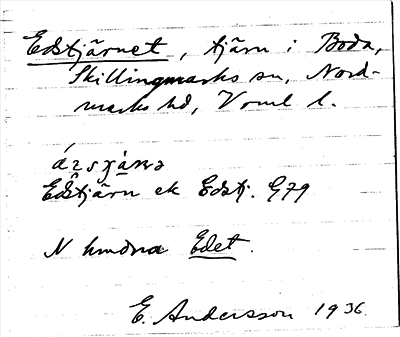 Edstjärnet, tjärn i Boda,
Skillingmarks sn, Nord-
marks hd, Vrml l.
Edstjärn ek Edstj. G79
N hmdna Edet.
E. Andersson 1936.